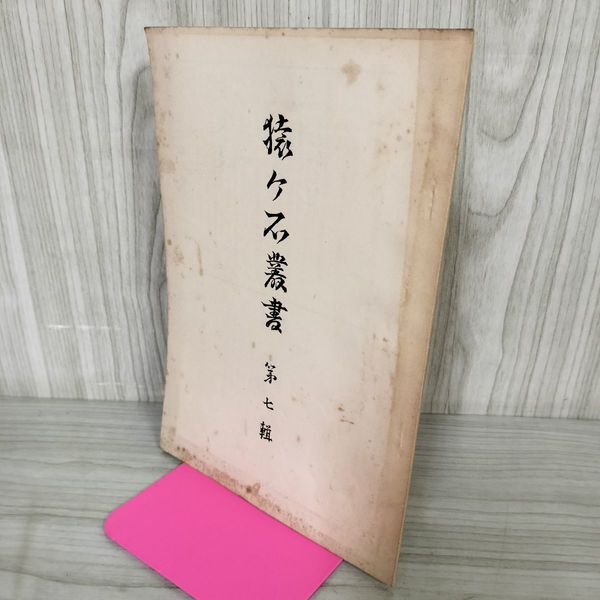 猿ケ石叢書
第七輯